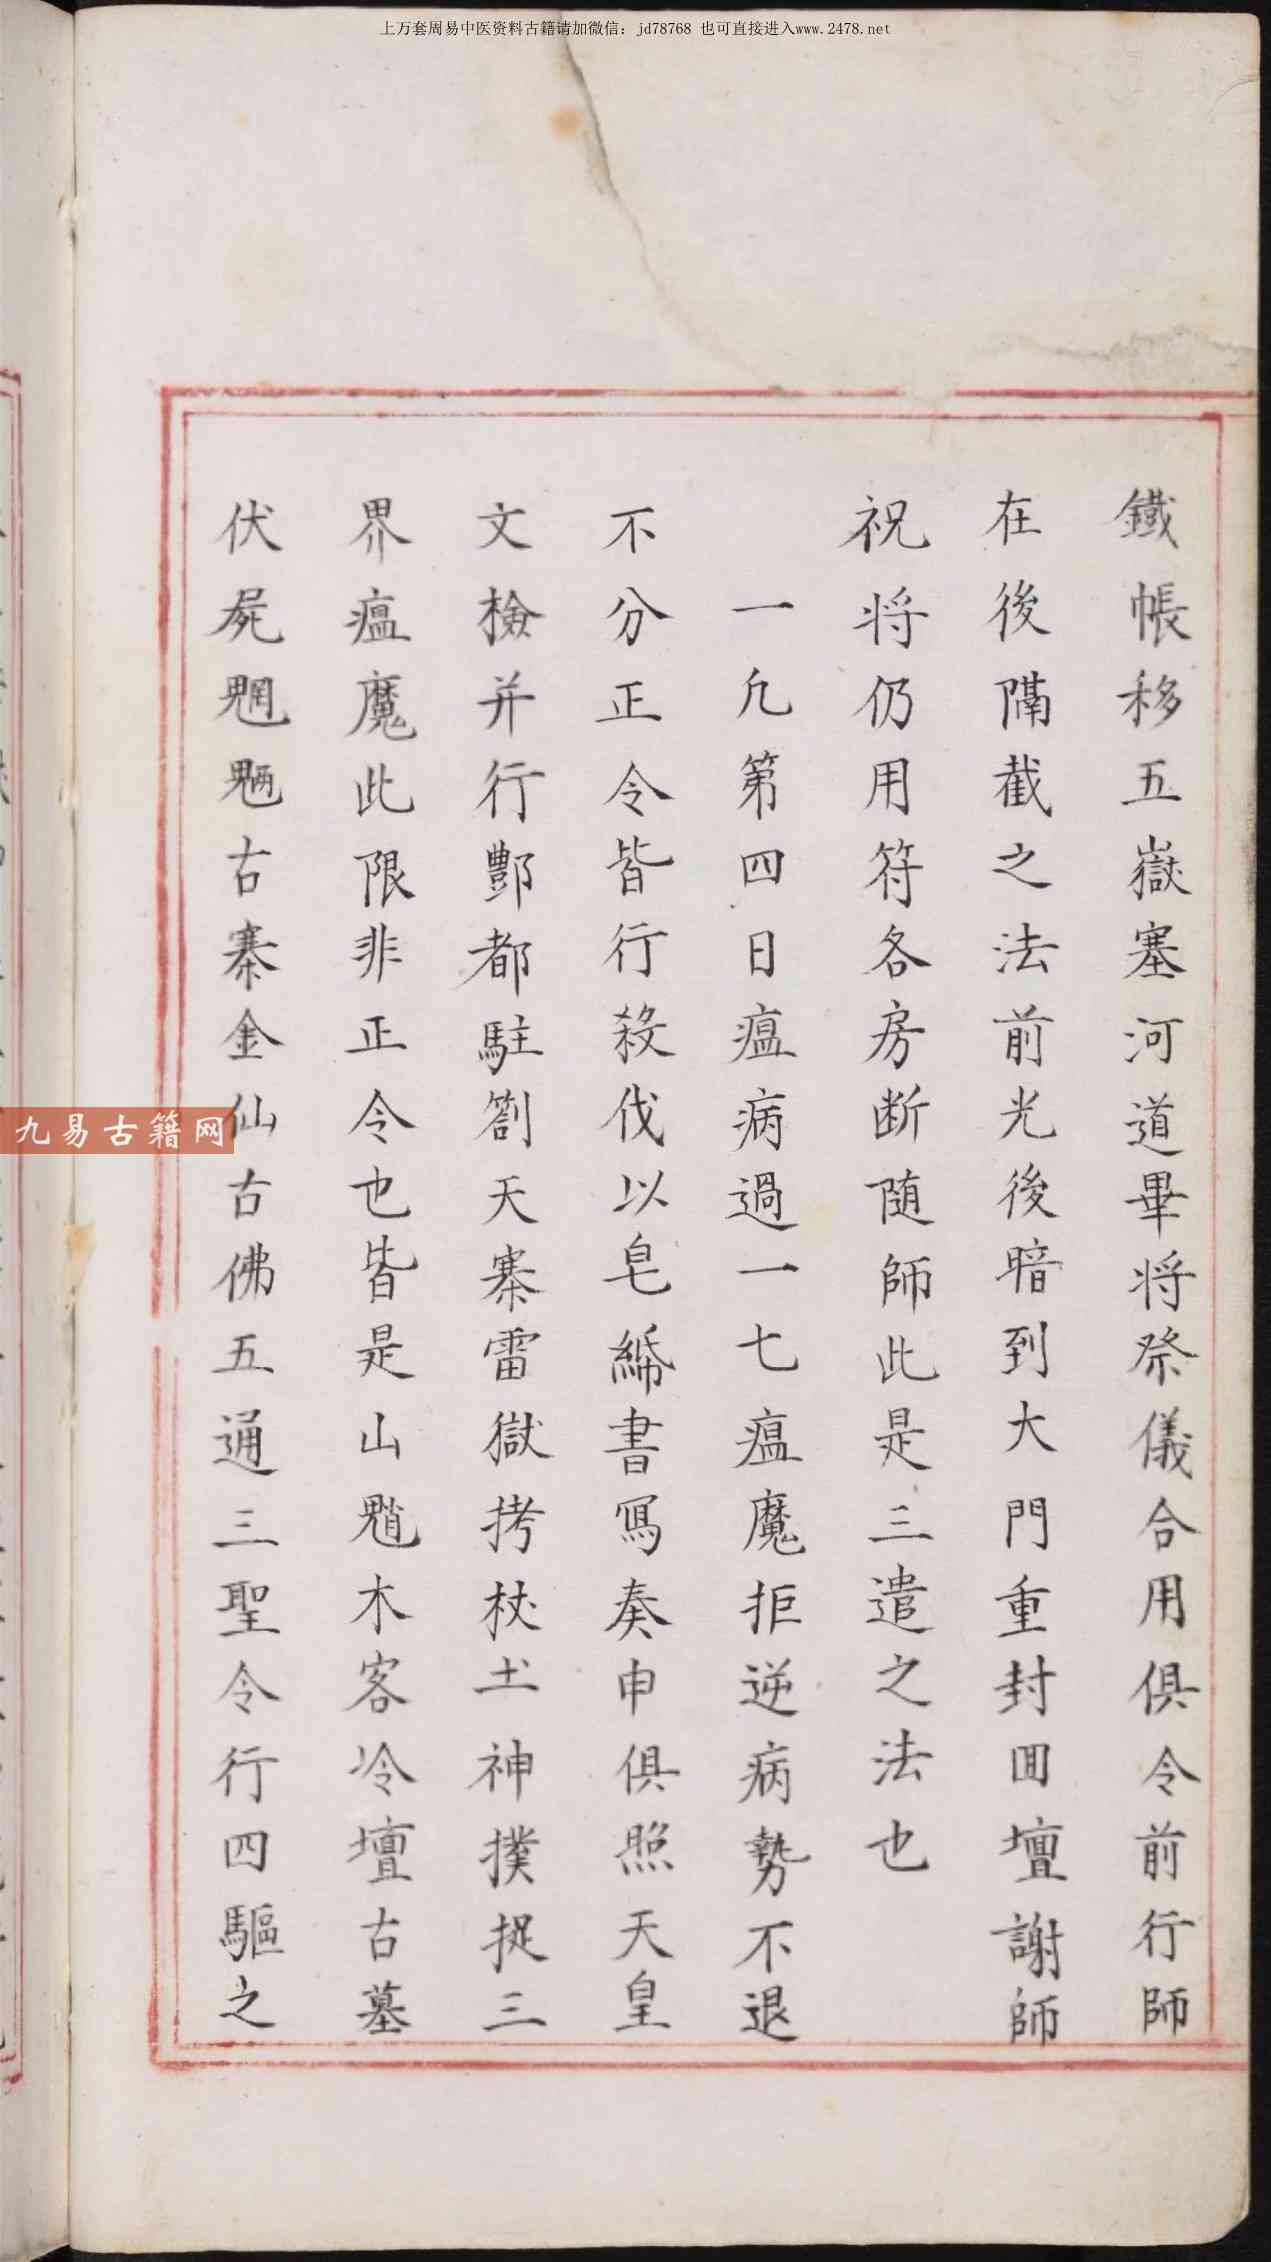 上万套周易中医资料古籍请加微信：jd78768 也可直接进入www.2478.net
鐵帳移五嶽塞河道畢将祭儀合用俱令前行師
在後隔截之法前光後暗到大門重封囬壇謝師
祝将仍用符各房断随師此是三遣之法也
一凡第四日瘟病過一七瘟魔拒逆病勢不退
不分正令皆行殺伐以皂綈書寫奏申俱照天皇
文檢并行酆都駐劄天寨雷獄拷杖土神撲捉三
界瘟魔此限非正令也皆是山魈木客冷壇古墓
伏屍魍魎古寨金仙古佛五通三聖令行四驅之
九易古籍网